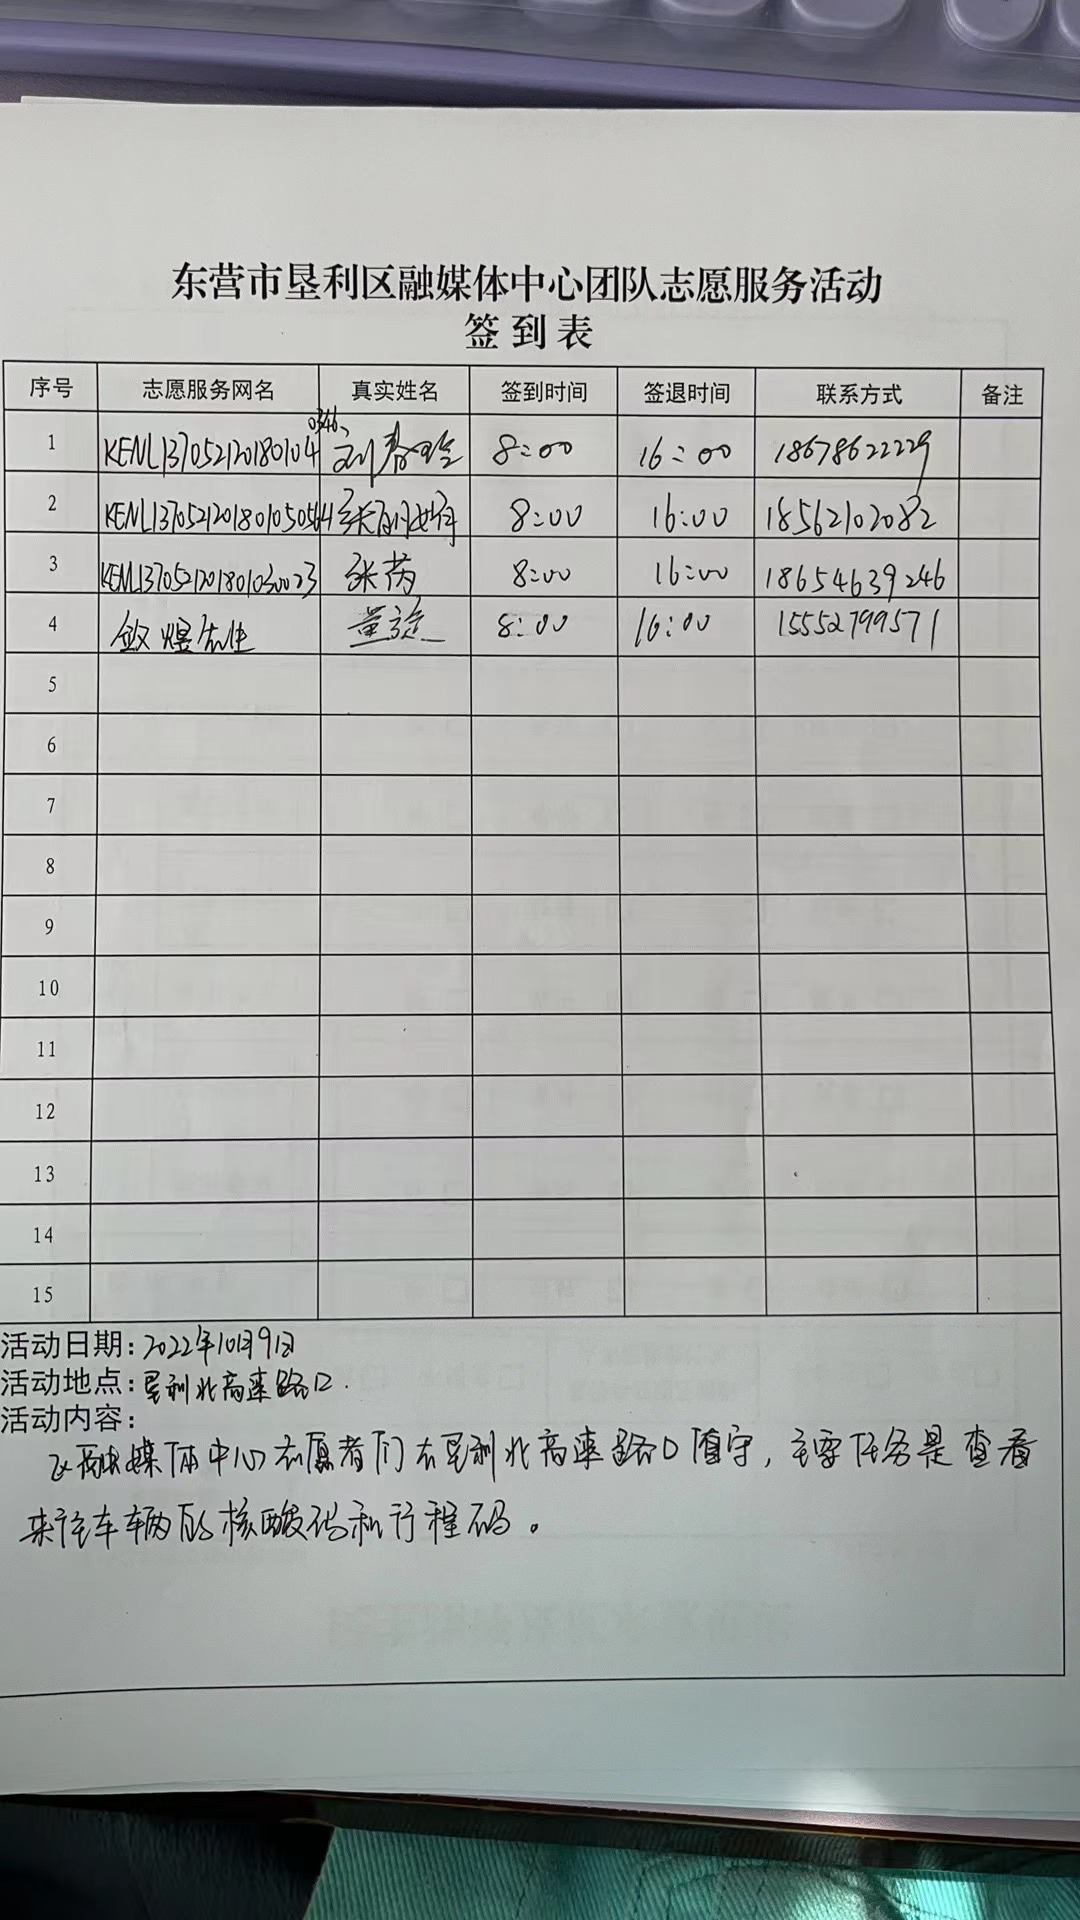 东营市垦利区融媒体中心团队志愿服务活动
签到表
序号 志愿服务网名 真实姓名 签到时间 签退时间 联系方式 备注
0346、
1 KENL137052120180104 刘春 8:00 16:00 18678622229
2 KENL1370521201801050564 张 8:00 16:00 18562102082
3 KENL1370521201801030023 张芮 8:00 16:00 18654639246
4 8:00 16:00 15552799571
5
6
7
8
9
10
11
12
13
14
15
活动日期:2022年10月9日
活动地点:垦利北高速路口.
活动内容:
区融媒体中心志愿者们在垦利北高速路口值守,主要任务是查看
来往车辆的核酸码和行程码。